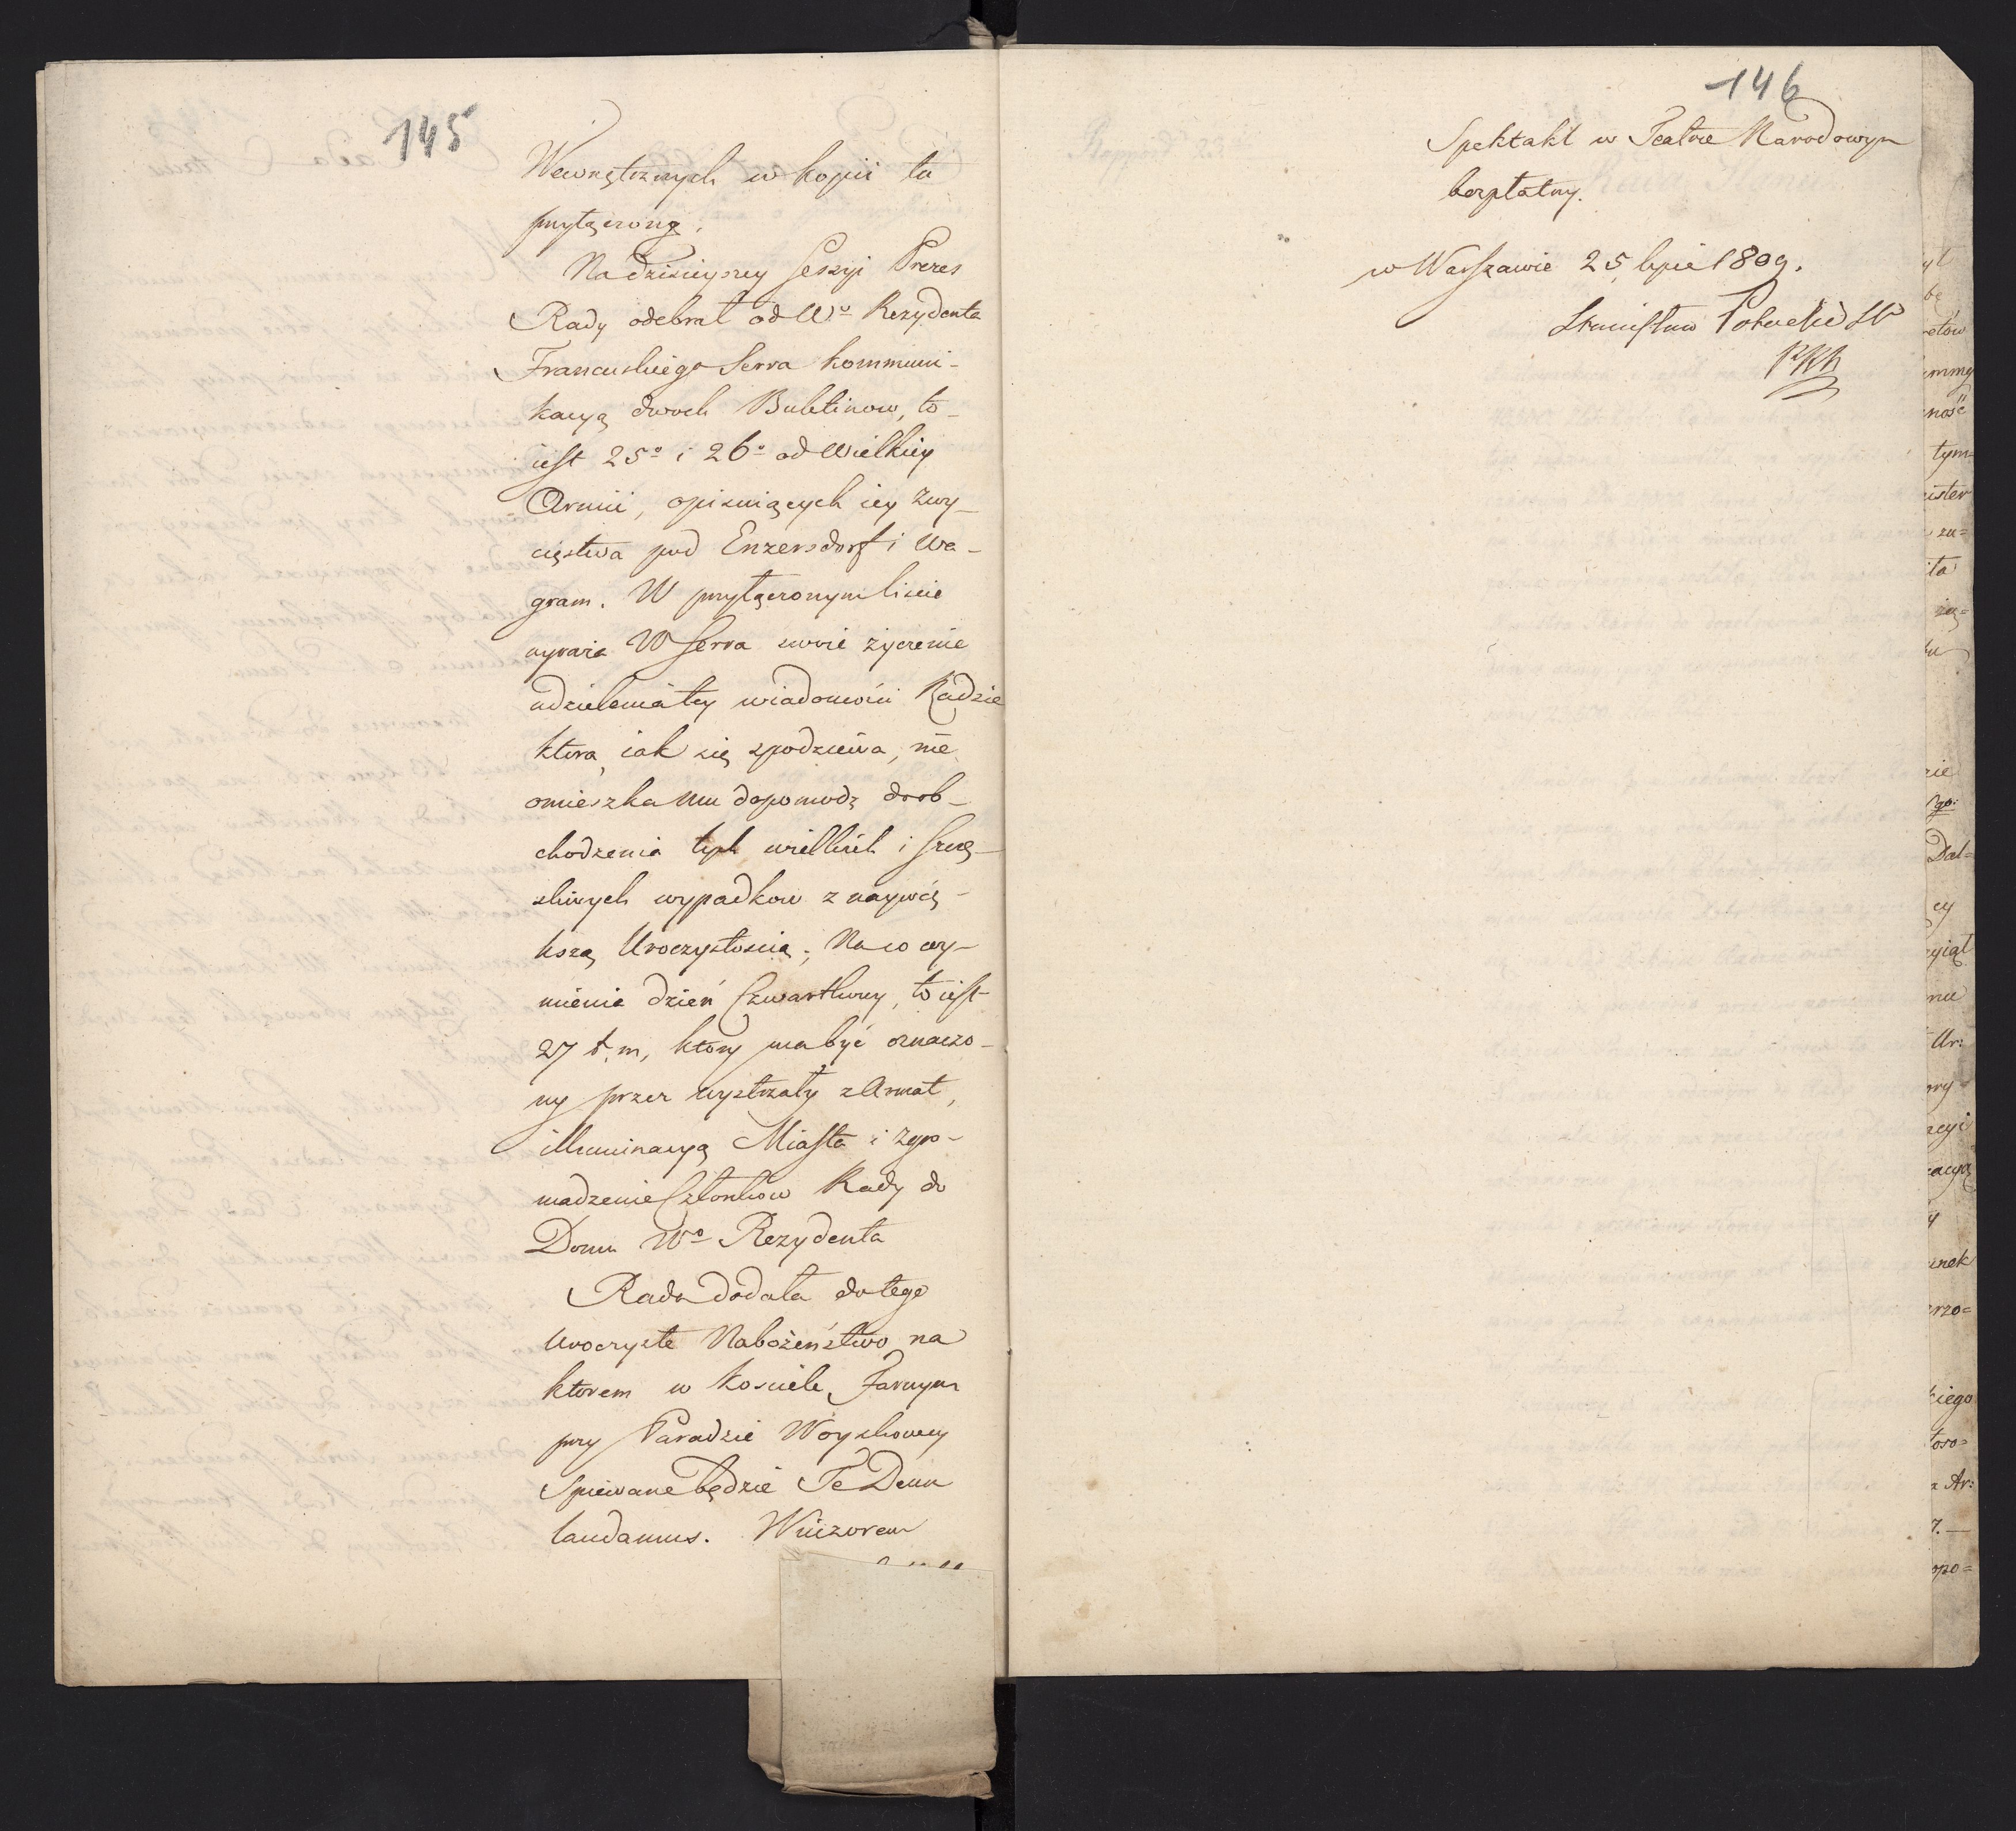 145
Wewnętrznych w kopii tu
przyłączoną.
Na dzisieyszey Sessyi Prezes
Rady odebrał od Wo Rezydenta
Francuskiego Serra kommuni-
kacyą dwoch Buletinow, to-
iest 25o i 26o od Wielkiey
Armii, opisuiących iey zwy-
cięstwa pod Enzersdorf i Wa-
gram. W przyłączonym liście
wyraża W Serra swoie życzenie
udzielenia tey wiadomości Radzie
ktora, iak się spodziewa, nie
omieszka mu dopomodz do ob-
chodzenia tych wielkich i szczę-
śliwych wypadkow z naywię-
kszą Uroczystością; Na co wy-
mienia dzień Czwartkowy, to iest
27 t. m, ktory ma być oznaczo-
ny przez wystrzały z Armat,
illuminacyą Miasta i zgro-
madzenie Członkow Rady do
Domu Wo Rezydenta
Rada dodała do tego
Uroczyste Nabożeństwo na
ktorem w kosciele Farnym
przy Paradzie Woyskowey
Spiewane będzie Te Deum
laudamus. Wieczorem
146
Spektakl w Teatrze Narodowym
bezpłatny.
w Warszawie 25 lipca 1809.
Stanisław Potocki SW
PRM